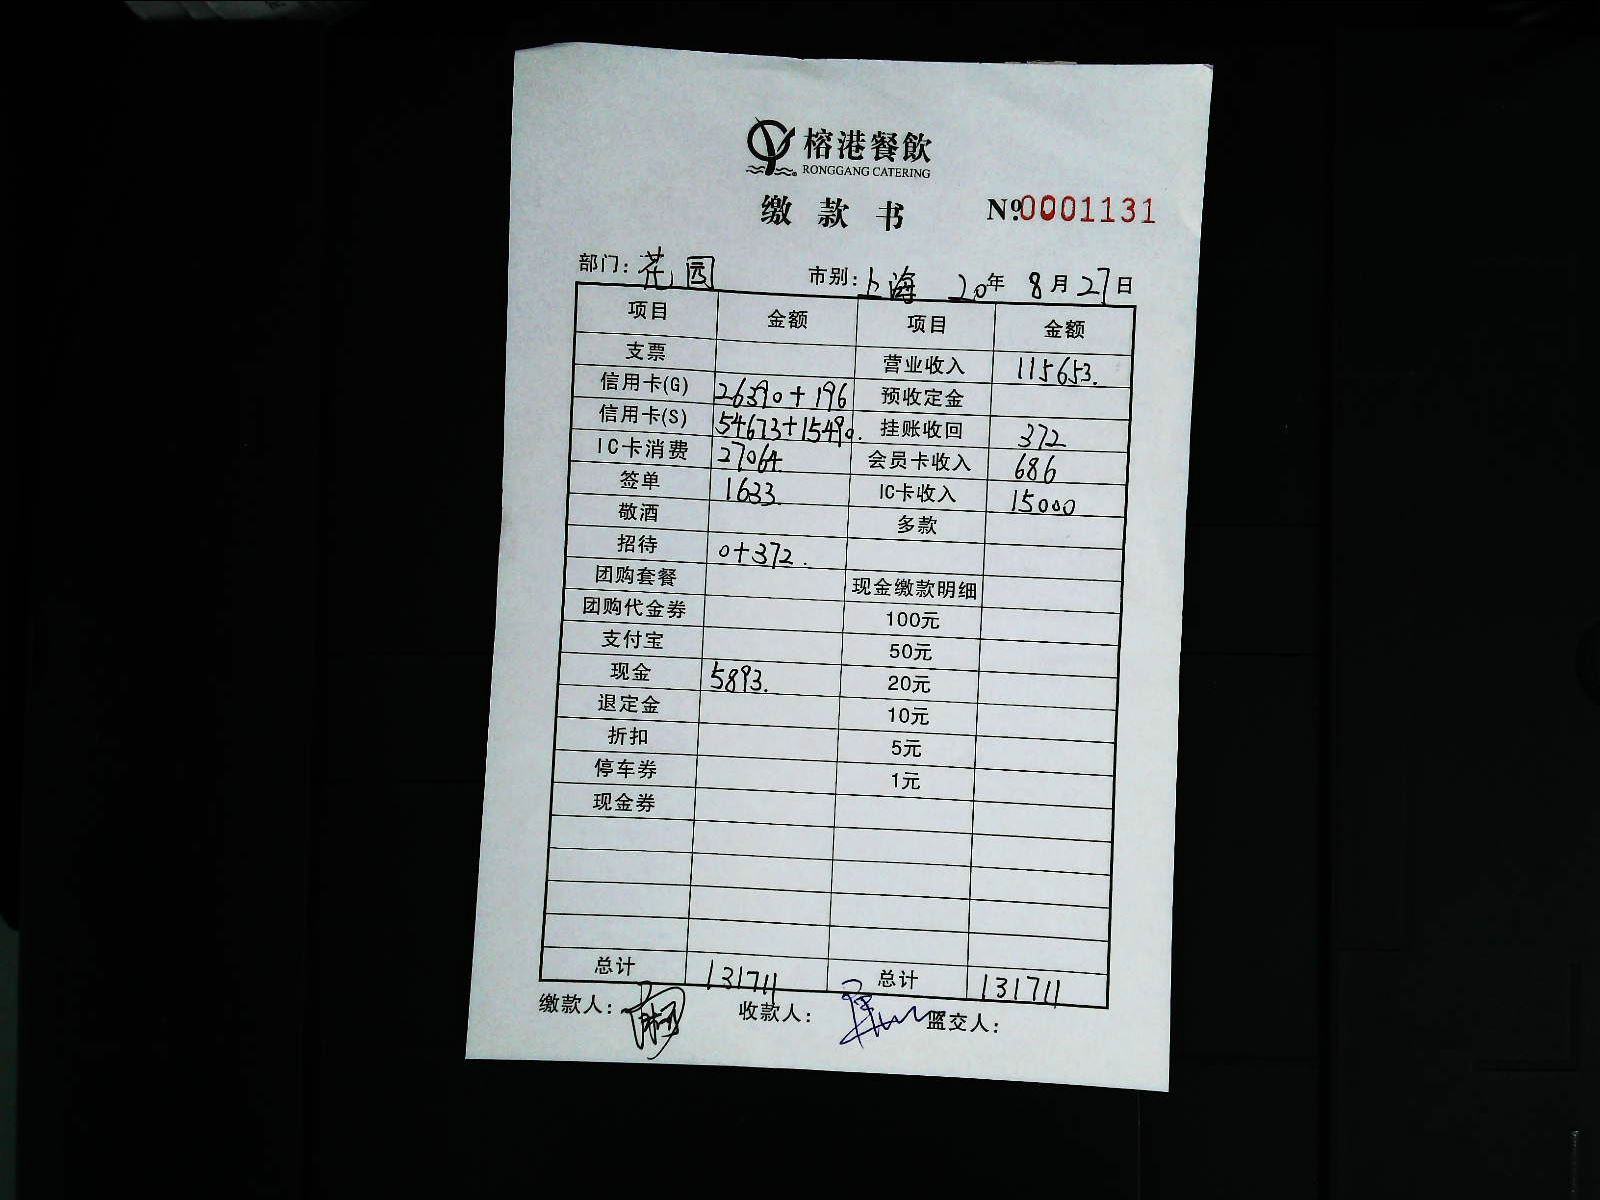 榕港餐飲
RONGGANG CATERING
缴款书 №0001131
部门：花园 市别：上海 20年 8月27日
项目 金额 项目 金额
支票 营业收入 115653.
信用卡(G) 26390+196 预收定金
信用卡(S) 54673+15490. 挂账收回 372
IC卡消费 27064 会员卡收入 686
签单 1633 IC卡收入 15000
敬酒 多款
招待 0+372.
团购套餐 现金缴款明细
团购代金券 100元
支付宝 50元
现金 5893. 20元
退定金 10元
折扣 5元
停车券 1元
现金券
总计 131711 总计 131711
缴款人： 收款人： 监交人：